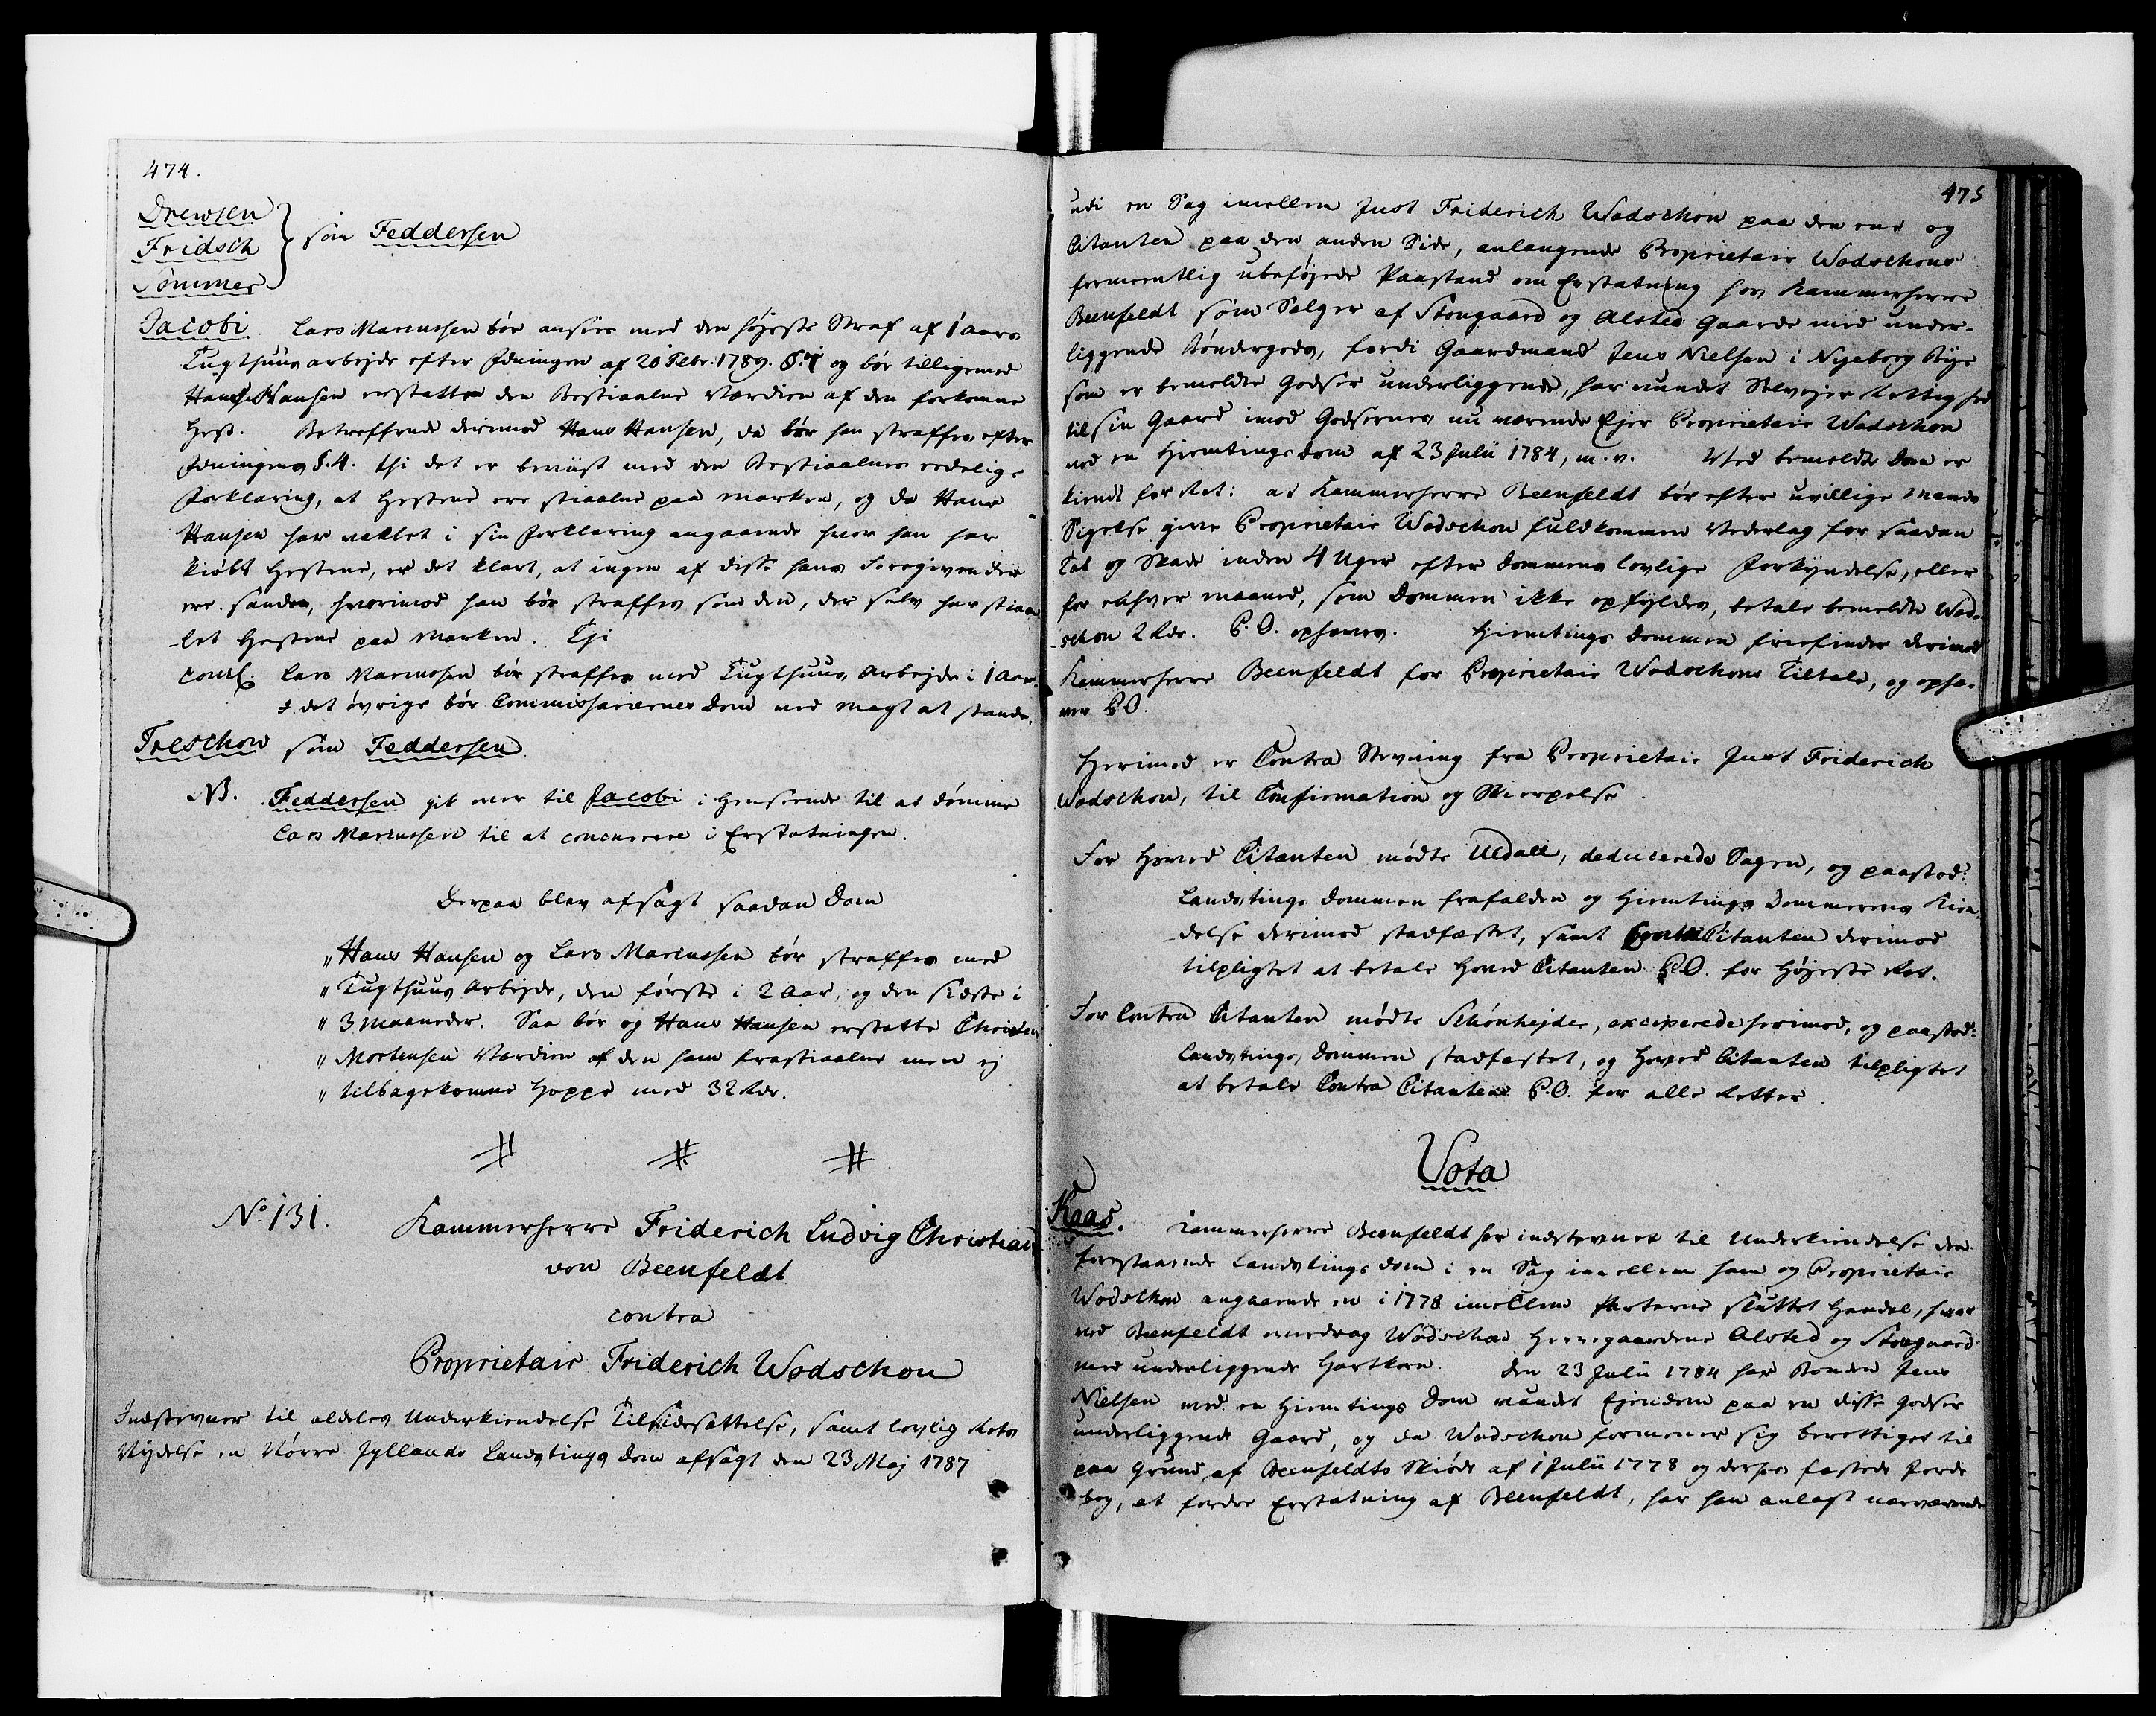 474.
Drewsen
Fridsch
Sommer
som Feddersen
Jacobi. Lars Marcussen bør ansees med den høyeste Straf af 1 Aars
Tugthuus arbejde efter Fdningen af 20 Febr. 1789. §.4 og bør tilligemed
Hans Hansen erstatte den Bestiaalne Værdien af den forkomne
Hest. Betreffende derimod Hans Hansen, da bør han straffes efter
Fdningens §.4. thi det er beviist med den Bestiaalnes eedelige
Forklaring, at Hestene ere stiaalne paa Marken, og da Hans
Hansen har vaklet i sin Forklaring angaaende hvor han har
kiøbt Hestene, er det klart, at ingen af disse hans Foregivender
ere sanden, hvorimod han bør straffes som den, der selv har stiaa
let Hestene paa Marken. Thi
concl. Lars Marcussen bør straffes med Tugthuus Arbejde i 1 Aar.
I det øvrige bør Commissariernes Dom ved magt at stande.
Treschow som Feddersen
NB. Feddersen gik over til Jacobi i Henseende til at dømme
Lars Marcussen til at concurrere i Erstatningen.
Derpaa blev afsagt saadan Dom
" Hans Hansen og Lars Marcussen bør straffes med
" Tugthuus Arbejde, den første i 2 Aar, og den sidste i
" 3 Maaneder. Saa bør og Hans Hansen erstatte Christen
" Mortensen Værdien af den ham frastiaalne men ej
" tilbagekomne Hoppe med 32 Rdr.
No 131. Kammerherre Friderich Ludvig Christian
von Beenfeldt
contra
Proprietair Friderich Wodschou
Indstevner til aldeles Underkiendelse Tilsidesættelse, samt lovlig Rets
Nydelse en Nørre Jyllands Landstings Dom afsagt den 23 Maj 1787
475
udi en Sag imellem Just Friderich Wodschou paa den ene og
Citanten paa den anden Side, anlangende Proprietair Wodschous
formeentlig ubeføjede Paastand om Erstatning hos Kammerherre
Beenfeldt som Sælger af Stougaard og Alsted Gaarde med under-
liggende Bøndergods, fordi Gaardmand Jens Nielsen i Nyeborg Bye
som er bemeldte Godser underliggende, har vundet Selvejer Rettighed
til sin Gaard imod Godsernes nu værende Ejer Proprietair Wodschou
ved en Hiemtings Dom af 23 Julii 1784, m.v. Ved bemeldte Dom er
kiendt for Ret: at Kammerherre Beenfeldt bør efter uvillige Mænds
Sigelse give Proprietair Wodschou fuldkommen Vederlag for saadan
Tab og Skade inden 4 Uger efter Dommens lovlige Forkyndelse, eller
for ethver Maaned, som Dommen ikke opfyldes, betale bemeldte Wod-
schou 2 Rdr. P.O. ophæves. Hiemtings Dommen friefinder derimod
Kammerherre Beenfeldt for Proprietair Wodschous Tiltale, og ophæ-
ver P.O.
Herimod er Contra Stevning fra Proprietair Just Friderich
Wodschou, til Confirmation og Skierpelse.
For Hoved Citanten mødte Uldall, deducerede Sagen, og paastod:
Landstings Dommen frafalden og Hiemtings Dommerens Kien-
delse derimod stadfæstet, samt Contra Citanten derimod
tilpligtet at betale Hoved Citanten P.O. for Højeste Ret.
For Contra Citanten mødte Schønheyder, exciperede herimod, og paastod:
Landstings Dommen stadfæstet, og Hoved Citanten tilpligtet
at betale Contra Citanten P.O. for alle Retter.
Vota
Kaas. Kammerherre Beenfeldt har indstevnet til Underkiendelse den
forestaaende Landstings Dom i en Sag imellem ham og Proprietair
Wodschou angaaende en i 1778 imellem Parterne sluttet Handel, hvor
ved Beenfeldt overdrog Wodschou Herregaardene Alsted og Stougaard
med underliggende Hartkorn. Den 23 Julii 1784 har Bonden Jens
Nielsen ved en Hiemtings Dom vundet Ejendom paa en disse Godser
underliggende Gaard, og da Wodschou formener sig berettiget til
paa Grund af Beenfeldts Skiøde af 1 Julii 1778 og derhos fæstede Jorde
bog, at fordre Erstatning af Beenfeldt, har han anlagt nærværende